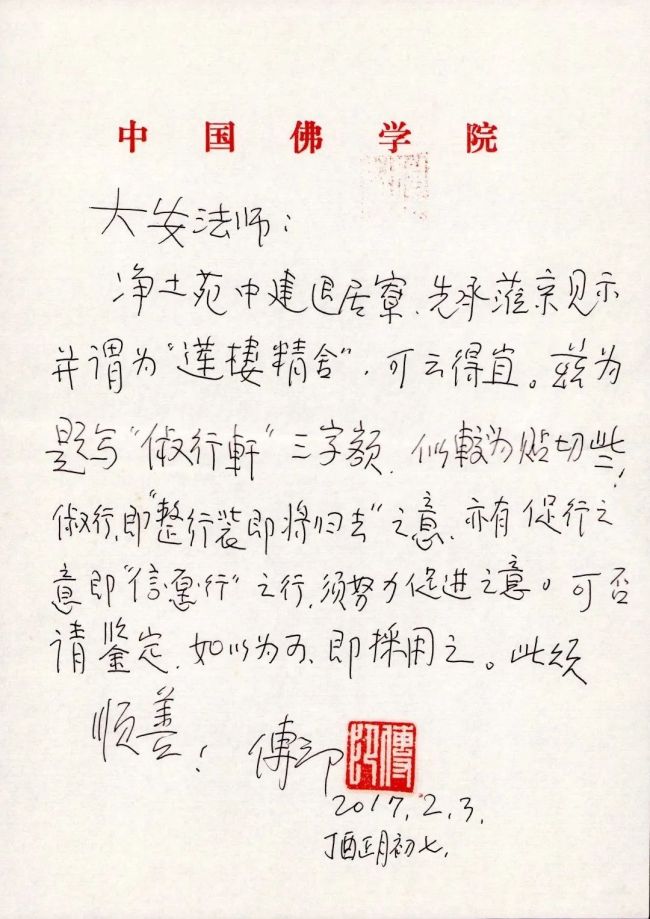 中国佛学院
大安法师：
净土苑中建退居寮，先承蒞京见示
并谓为“莲楼精舍”，可云得宜。兹为
题写“俶行軒”三字额，似較为贴切些，
俶行，即“整行装即将归去”之意，亦有促行之
意即“信愿行”之行，须努力促进之意。可否
请鉴定，如以为可、即採用之。此颂
顺善！ 傅印
傅印
2017.2.3.
丁酉正月初七.